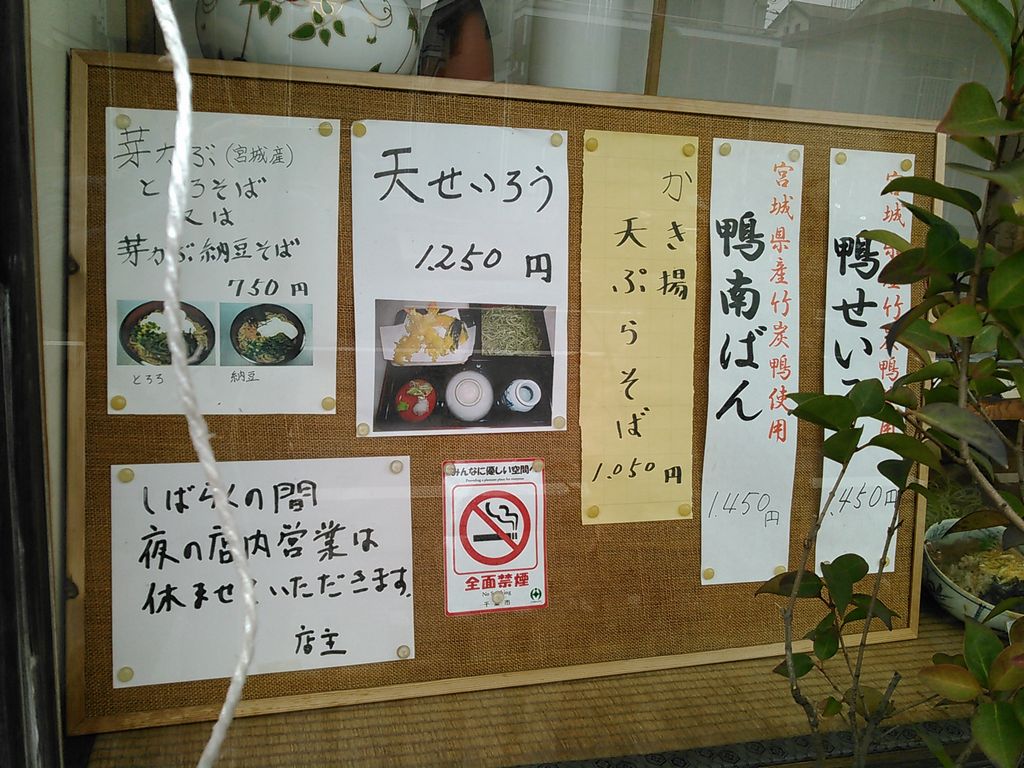 芽かぶ(宮城産)
とろろそば
又は
芽かぶ納豆そば
750円
とろろ
納豆
天せいろう
1.250円
かき揚
天ぷらそば
1.050円
宮城県産竹炭鴨使用
鴨南ばん
1.450円
鴨せい
1.450円
しばらくの間
夜の店内営業は
休ませていただきます。
店主
みんなに優しい空間へ
Providing a pleasant place for everyone
全面禁煙
No Smoking
千葉市